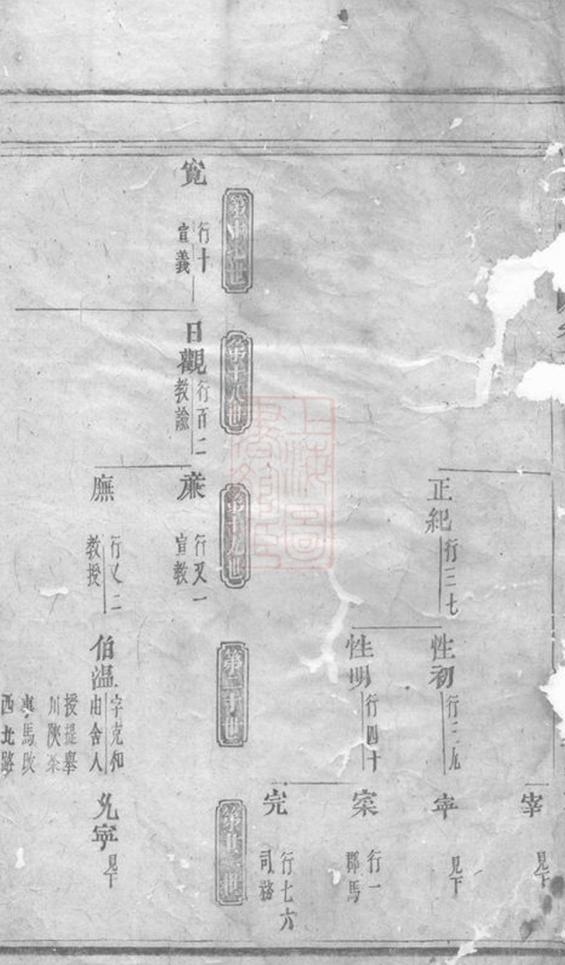 宰 見下
正紀 行三七
性初 行三九
寧 見下
性明 行四十
寀 行一
郡馬
完 行七六
司務
第十七世
第十八世
第十九世
第二十世
第廿一世
寬 行十
宣義
日觀 行百二
教諭
行又一
宣教
廡 行又二
教授
伯溫 字克和
由舍人
授提舉
川陝茶
馬改
西北路
寧 見下